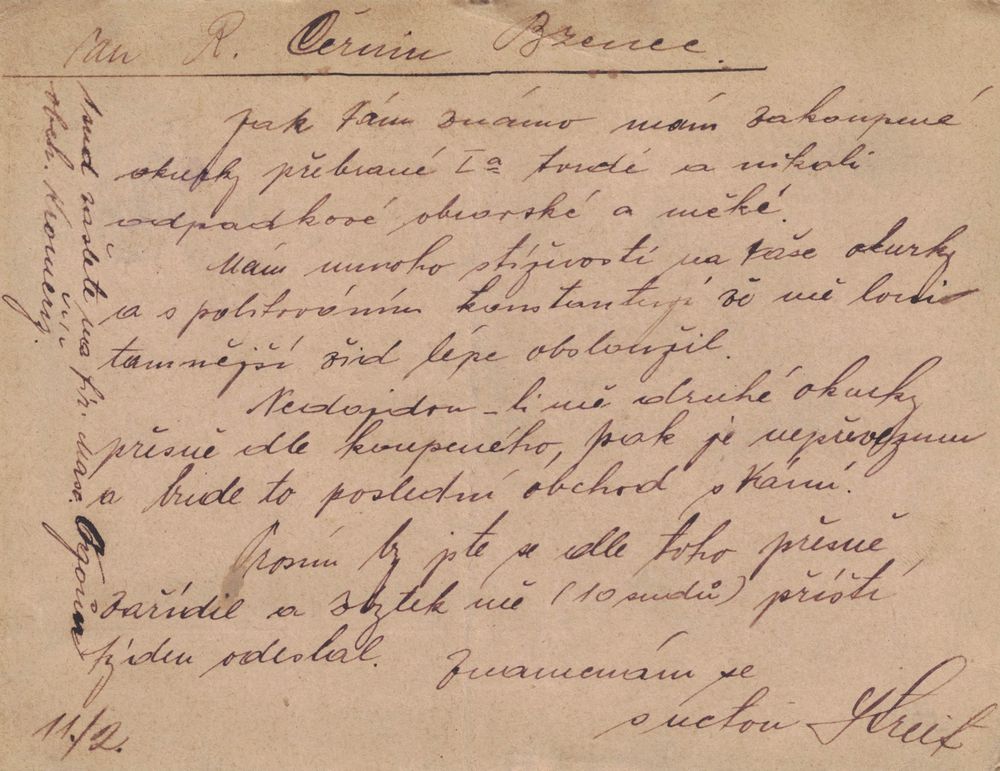 Pan R. Čermín Bzenec.
Jak Vám známo mám zakoupené
okurky přebrané Iª tvrdé a nikoli
odpadkové obrovské a měké.
Mám mnoho stížností na Vaše okurky
a s politováním konstantuji že mě loni
tamnější žid lépe obsloužil.
Nedojdou-li mě druhé okurky
přesně dle koupeného, pak je nepřevezmu
a bude to poslední obchod s Vámi.
Prosím by jste se dle toho přesně
zařídil a zbytek mě (10 sudů) příští
týden odeslal.
Znamenám se
s úctou
11./2.
1 sud zašlete na fir.
obch. Kroměříž.